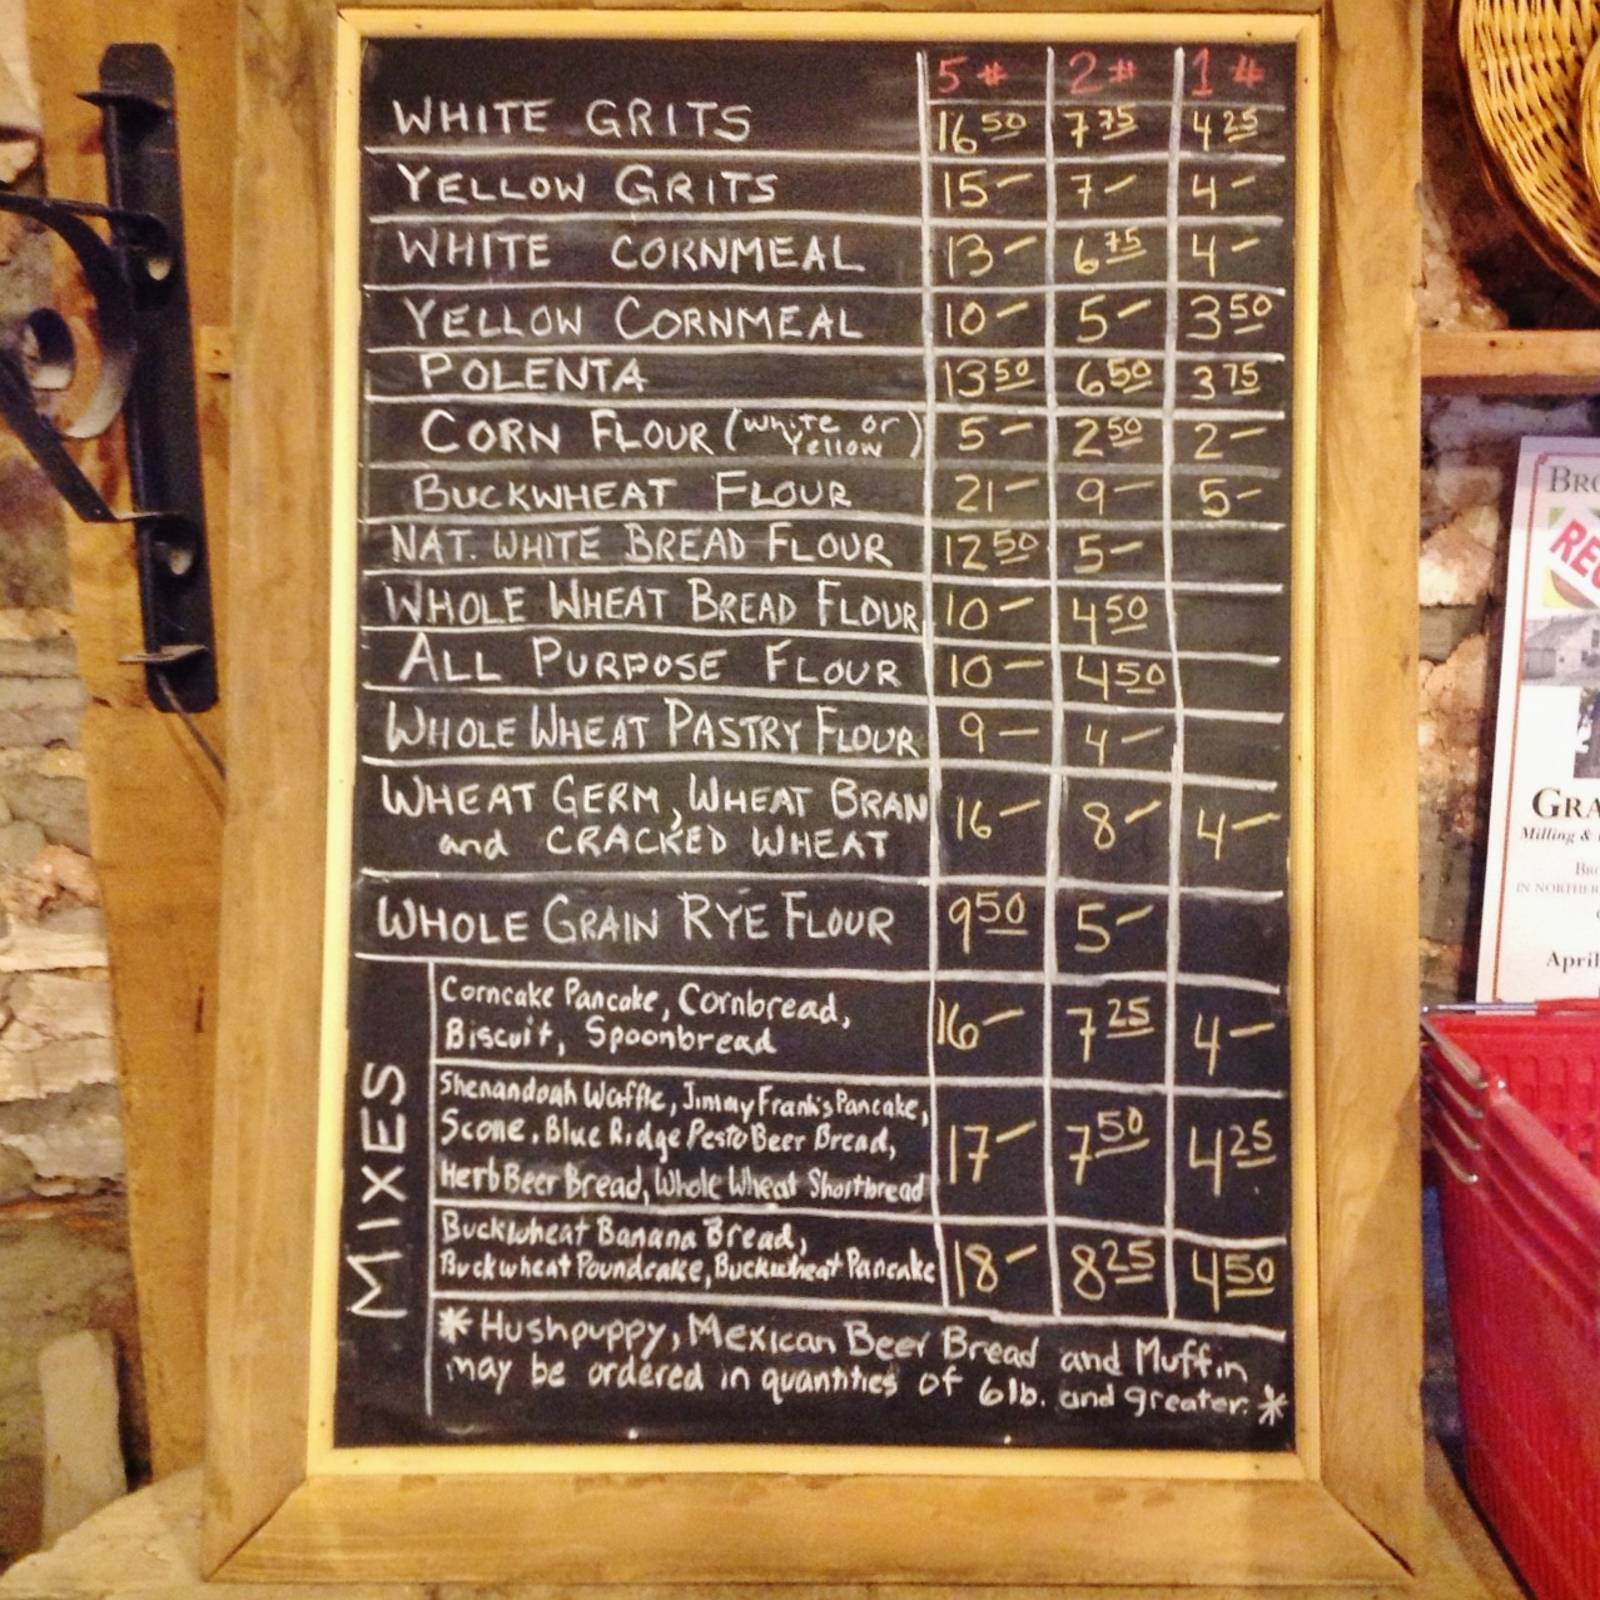 5# 2# 1#
WHITE GRITS 16 50 7 75 4 25
YELLOW GRITS 15 – 7 – 4 –
WHITE CORNMEAL 13 – 6 75 4 –
YELLOW CORNMEAL 10 – 5 – 3 50
POLENTA 13 50 6 50 3 75
CORN FLOUR (white or Yellow) 5 – 2 50 2 –
BUCKWHEAT FLOUR 21 – 9 – 5 –
NAT. WHITE BREAD FLOUR 12 50 5 –
WHOLE WHEAT BREAD FLOUR 10 – 4 50
ALL PURPOSE FLOUR 10 – 4 50
WHOLE WHEAT PASTRY FLOUR 9 – 4 –
WHEAT GERM, WHEAT BRAN
and CRACKED WHEAT 16 – 8 – 4 –
WHOLE GRAIN RYE FLOUR 9 50 5 –
MIXES
Corncake Pancake, Cornbread,
Biscuit, Spoonbread 16 – 7 25 4 –
Shenandoah Waffle, Jimmy Frank's Pancake,
Scone, Blue Ridge Pesto Beer Bread, 17 – 7 50 4 25
Herb Beer Bread, Whole Wheat Shortbread
Buckwheat Banana Bread,
Buckwheat Poundcake, Buckwheat Pancake 18 – 8 25 4 50
* Hushpuppy, Mexican Beer Bread and Muffin
may be ordered in quantities of 6lb. and greater. *
Milling &
April